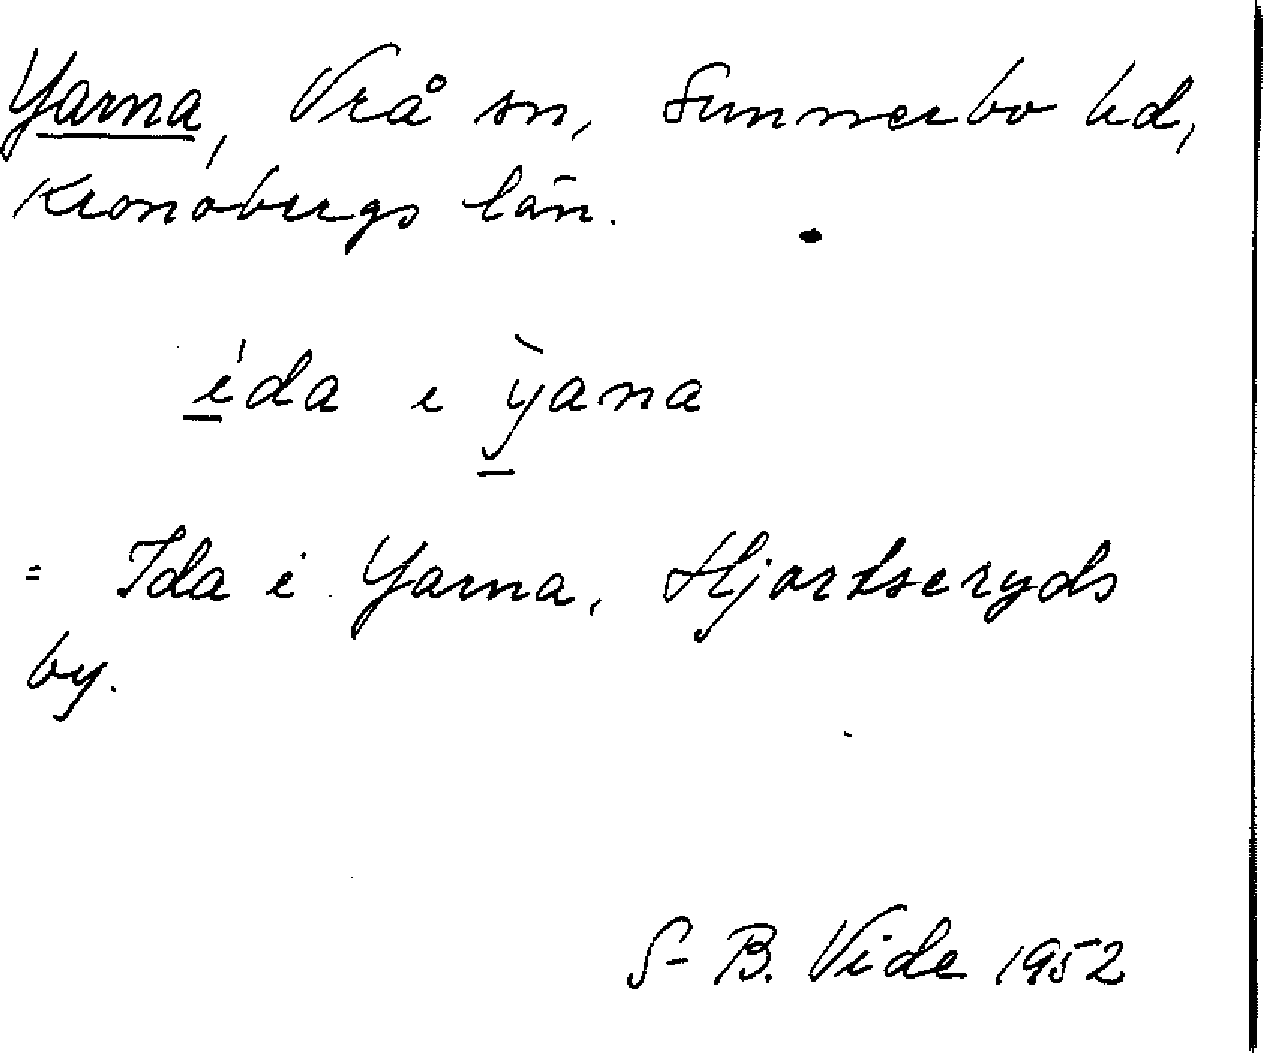 Yarna, Vrå sn, Sunnerbo hd,
Kronobergs län.
ída i ỳana
= Ida i Yarna, Hjortseryds
by.
S-B. Vide 1952